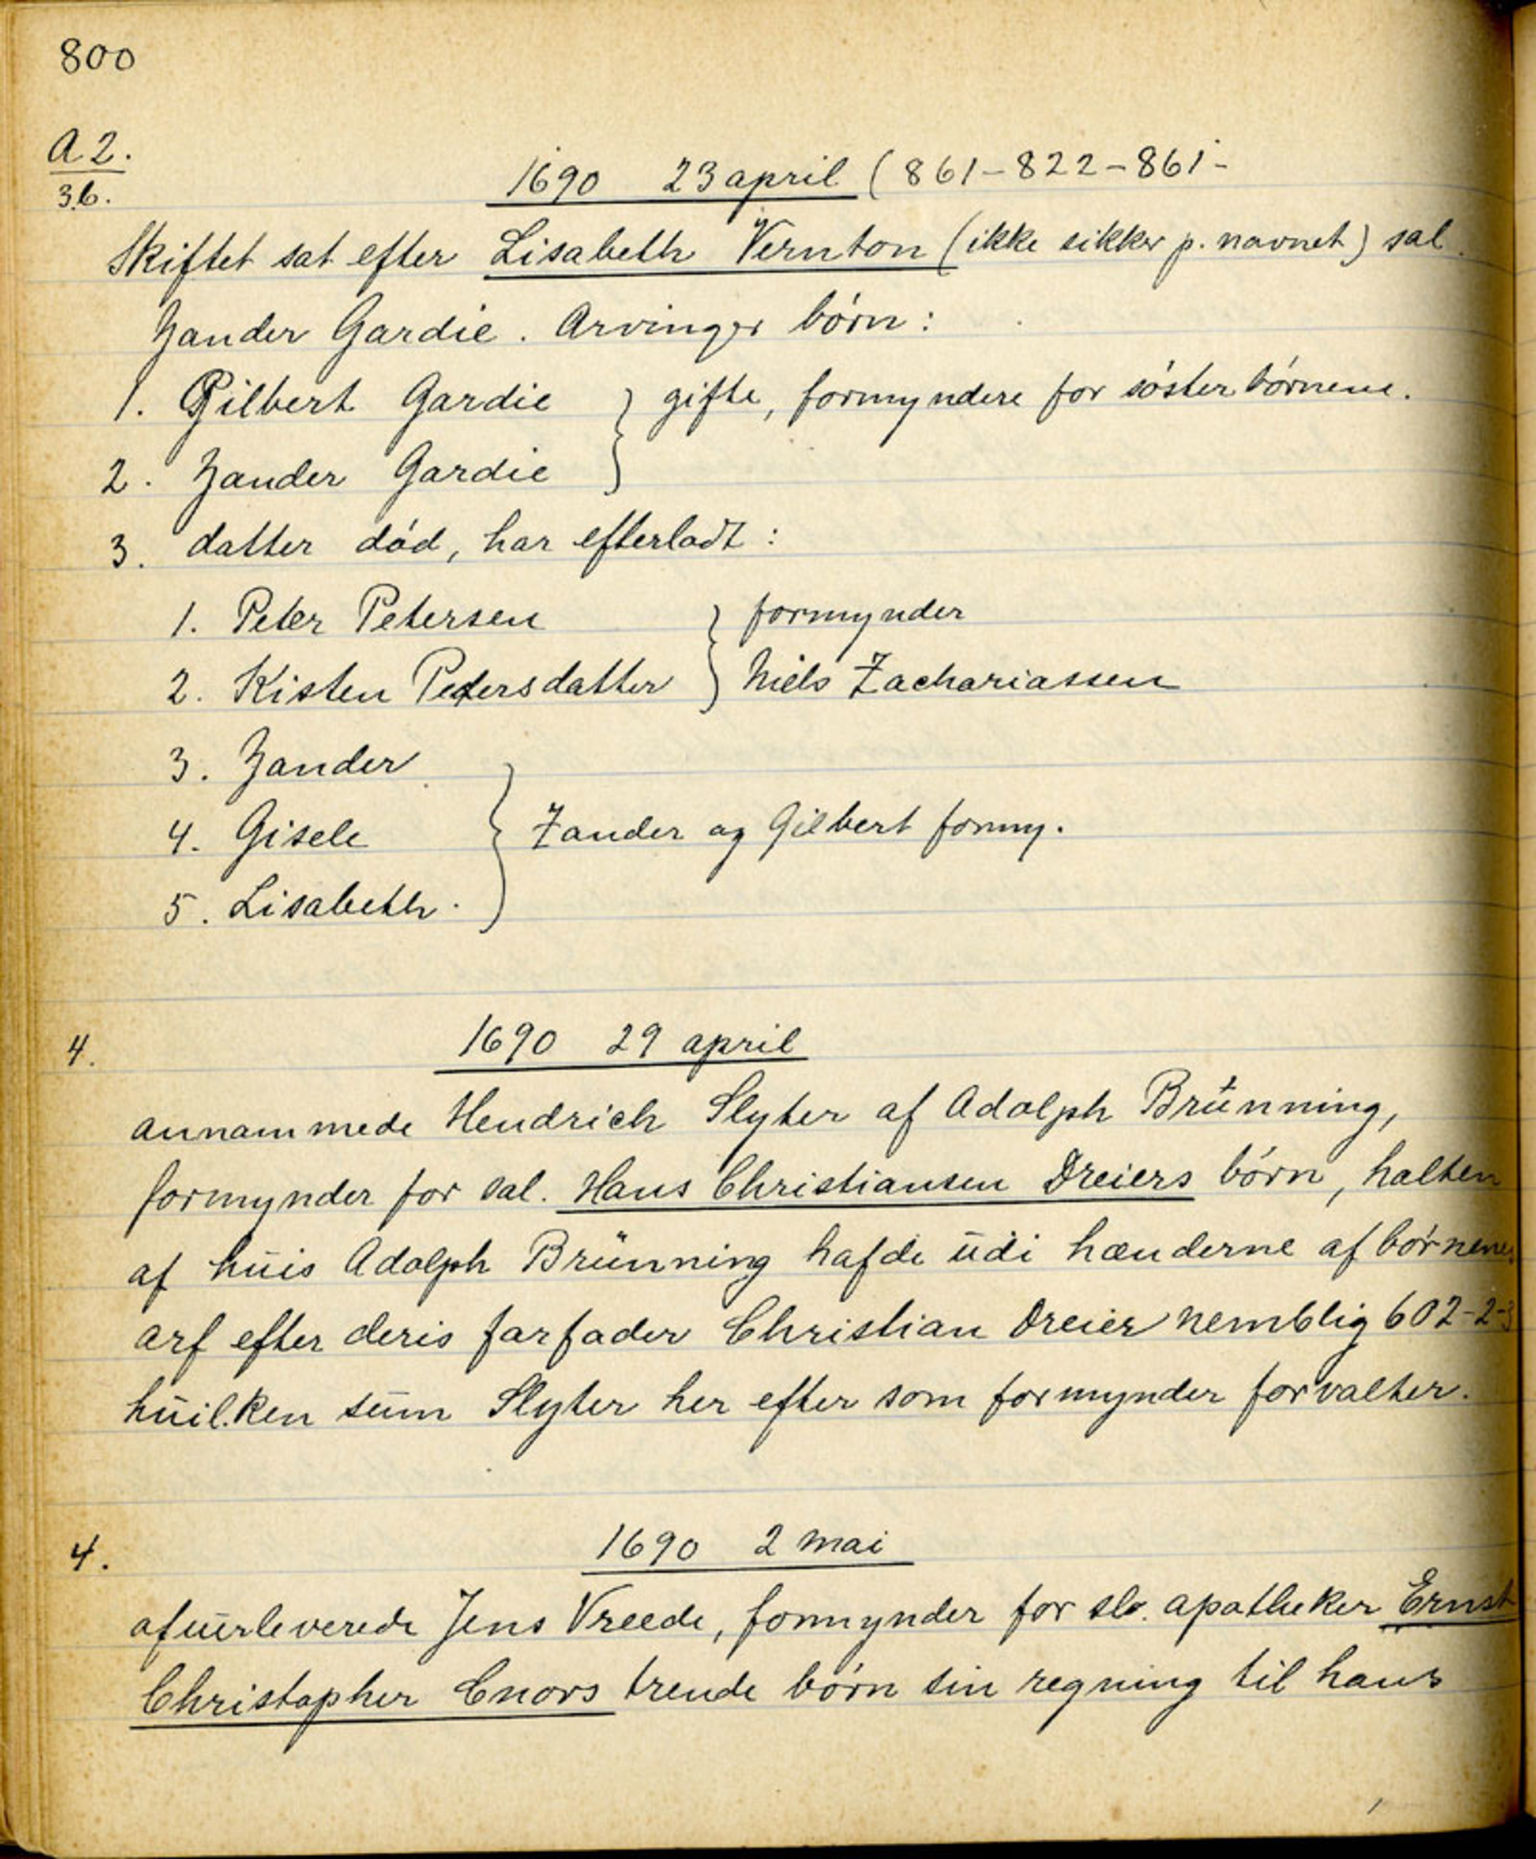 800
A.2.
3b.
1690 23 april (861-822-861-
Skiftet sat efter Lisabeth Vernton (ikke sikker p. navnet) sal.
Zander Gardie. Arvinger børn:
1. Gilbert Gardie } gifte, formyndere for søsterbørnene.
2. Zander Gardie
3. datter død, har efterladt:
1. Peter Petersen } formynder
2. Kisten Pedersdatter } Niels Zachariassen
3. Zander
4. Gisele } Zander og Gilbert formy.
5. Lisabeth.
4. 1690 29 april
annammede Hendrich Slyter af Adolph Brünning,
formynder for sal. Hans Christiansen Dreiers børn, halten
af huis Adolph Brünning hafde udi hænderne af børnenes
arf efter deris farfader Christian Dreier nemblig 602-2-3
huilken sum Slyter her efter som formynder forvalter.
4. 1690 2 mai
afuerleverede Jens Vreede, formynder for sl. apotheker Ernst
Christopher Cnors trende børn sin regning til hans